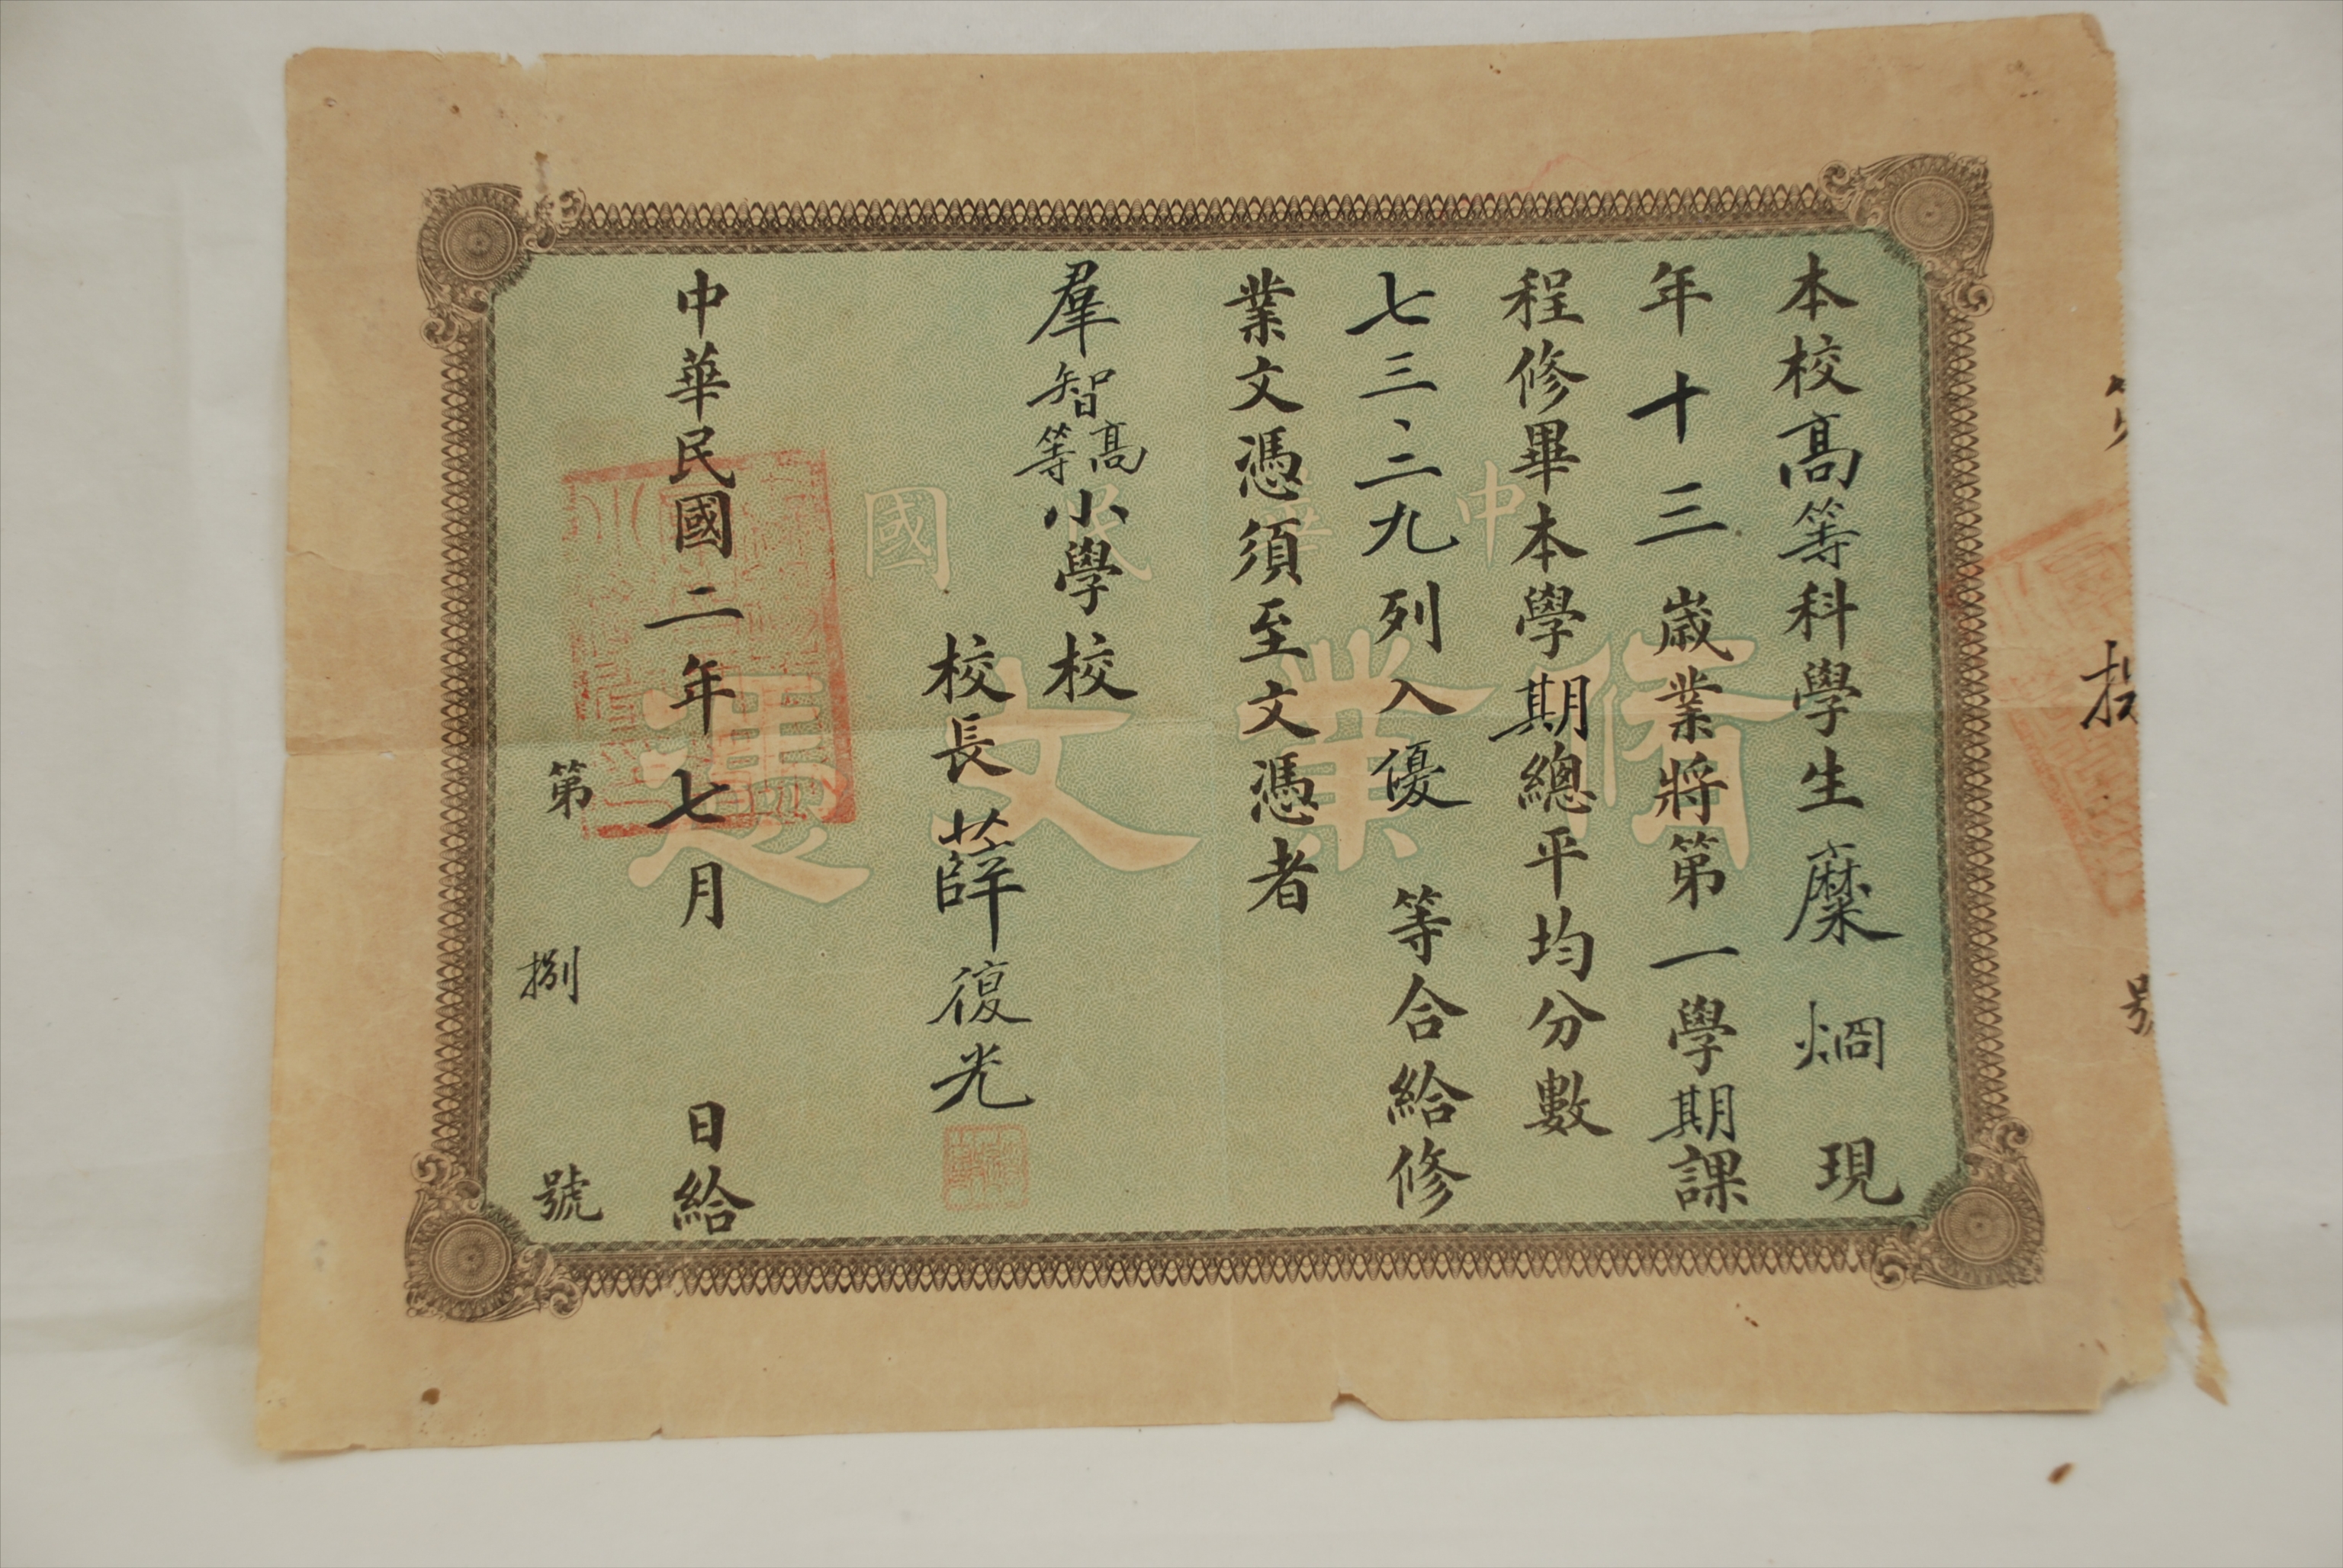 本校高等科學生糜烱現
年十三歲業將第一學期課
程修畢本學期總平均分數
七三、三九列入優等合給修
業文憑須至文憑者
羣智高等小學校
校長薛復光
中華民國二年七月日給
第捌號
中華民國
修業文憑